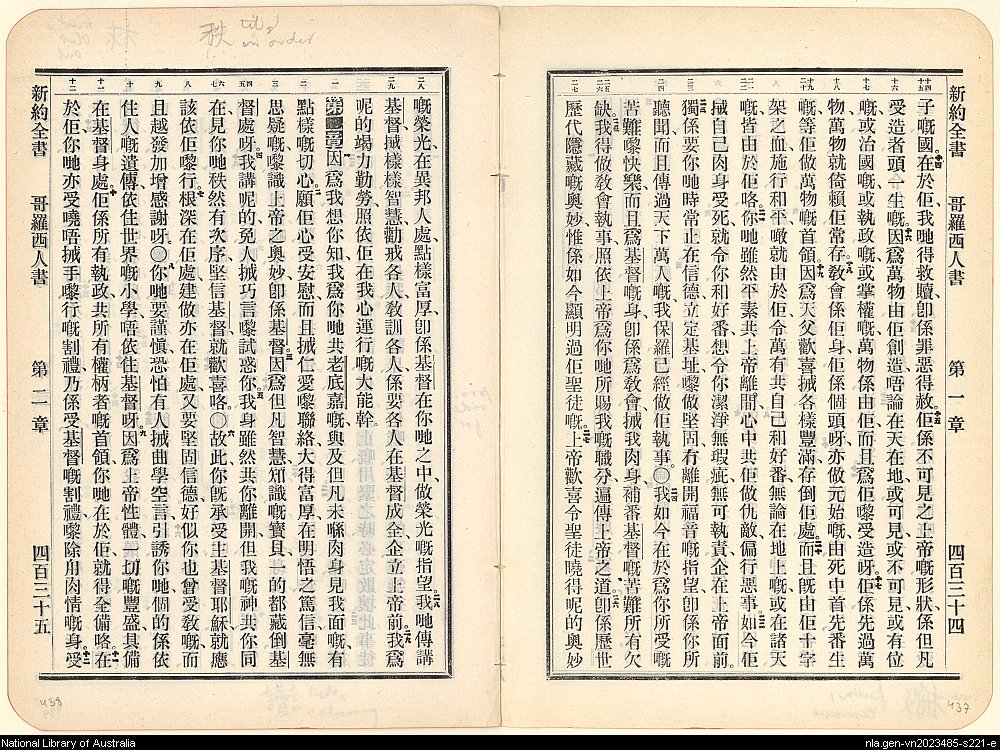 新約全書 哥羅西人書 第一章 四百三十四
子嘅國在於佢我哋得救贖卽係罪惡得赦佢係不可見之上帝嘅形狀係但凡
受造者頭一生嘅因爲萬物由佢創造唔論在天在地或可見或不可見或有位
嘅或治國嘅或執政嘅或掌權嘅萬物係由佢而且爲佢嚟受造呀佢係先過萬
物萬物就倚賴佢常存敎會係佢身佢係個頭呀亦做元始嘅由死中首先番生
嘅等佢做萬物嘅首領因爲天父歡喜搣各樣豐滿存倒佢處而且旣由佢十字
架之血施行和平噉就由於佢令萬有共自己和好番無論在地上嘅或在諸天
嘅皆由於佢咯你哋雖然平素共上帝離間心中共佢做仇敵偏行惡事如今佢
搣自己肉身受死就令你和好番想令你潔淨無瑕疵無可執責企在上帝面前
獨係要你哋時常止在信德立定基址嚟做堅固冇離開福音嘅指望卽係你所
聽聞而且傳過天下萬人嘅我保羅已經做佢執事〇我如今在於爲你所受嘅
苦難嚟快樂而且爲基督嘅身卽係爲敎會搣我肉身補番基督嘅苦難所有欠
缺我得做敎會執事照依上帝爲你哋所賜我嘅職分遍傳上帝之道卽係歷世
歷代隱藏嘅奧妙惟係如今顯明過佢聖徒嘅上帝歡喜令聖徒曉得呢的奧妙
437
嘅榮光在異邦人處點樣富厚卽係基督在你哋之中做榮光嘅指望我哋傳講
基督搣樣樣智慧勸戒各人敎訓各人係要各人在基督成全企立上帝前我爲
呢的竭力勤勞照依佢在我心運行嘅大能幹
第二章因爲我想你知我爲你哋共老底嘉嘅與及但凡未喺肉身見我面嘅有
點樣嘅切心願佢心受安慰而且搣仁愛嚟聯絡大得富厚在明悟之篤信毫無
思疑嘅嚟識上帝之奧妙卽係基督因爲但凡智慧知識嘅寶貝一的都藏倒基
督處呀我講呢的免人搣巧言嚟試惑你我身雖然共你離開但我嘅神共你同
在見你哋秩然有次序堅信基督就歡喜咯〇故此你旣承受主基督耶穌就應
該依佢嚟行根深在佢處建做亦在佢處又要堅固信德好似你也曾受敎嘅而
且越發加增感謝呀〇你哋要謹愼恐怕有人搣曲學空言引誘你哋個的係依
住人嘅遺傳依住世界嘅小學唔依住基督呀因爲上帝性體一切嘅豐盛具備
在基督身處佢係所有執政共所有權柄者嘅首領你哋在於佢就得全備咯在
於佢你哋亦受嘵唔搣手嚟行嘅割禮乃係受基督嘅割禮嚟除甩肉情嘅身受
新約全書 哥羅西人書 第二章 四百三十五
秩 in order
438
National Library of Australia
nla.gen-vn2023485-s221-e